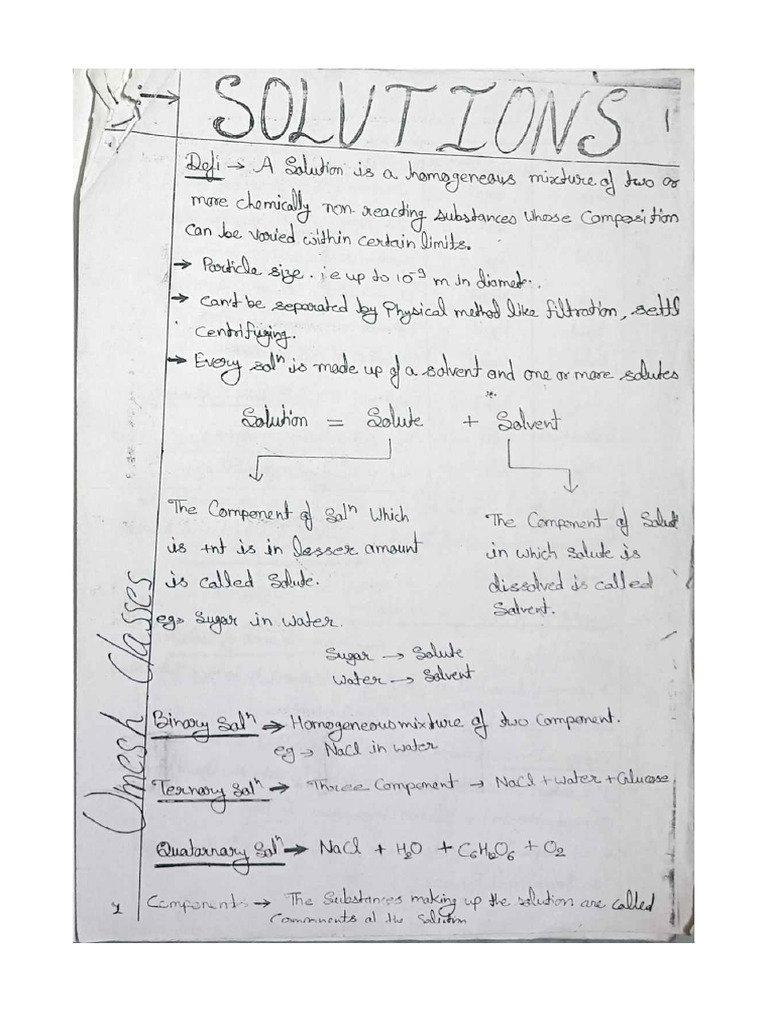 SOLUTIONS
1
Defi → A Solution is a homogeneous mixture of two or
more chemically non-reacting substances whose Composition
can be varied within certain limits.
→ Particle size. i.e up to 10⁻⁹ m in diamet
→ can't be separated by Physical method like filtration, settl
centrifuging.
→ Every solⁿ is made up of a solvent and one or more solutes
Solution = Solute + Solvent
The Component of Solⁿ Which
is +nt is in lesser amount
is called Solute.
eg→ Sugar in water.
The Component of
in which solute is
dissolved is called
Solvent.
Sugar → Solute
Water → Solvent
Binary Solⁿ → Homogeneous mixture of two Component.
eg → NaCl in water
Ternary Solⁿ → Three Component → NaCl + water + Glucose
Quatarnary Solⁿ → NaCl + H₂O + C₆H₁₂O₆ + O₂
Component → The Substances making up the solution are called
the Solution
1
Umesh Classes